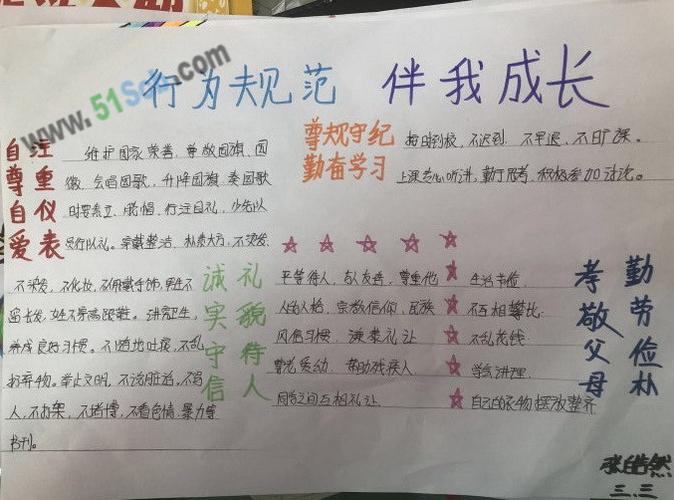 www.51Sds.com
行为规范 伴我成长
自尊自爱
注重仪表
维护国家荣誉，尊敬国旗、国
徽，会唱国歌，升降国旗、奏国歌
时要肃立、脱帽、行注目礼，少先队
员行队礼。穿戴整洁、朴素大方，不烫发，
不染发，不化妆，不佩戴首饰，男生不
留长发，女生不穿高跟鞋。讲究卫生，
养成良好习惯。不随地吐痰，不乱
扔弃物。举止文明，不说脏话，不骂
人，不打架，不赌博，不看色情、暴力等
书刊。
遵规守纪
勤奋学习
按时到校，不迟到，不早退，不旷课。
上课专心听讲，勤于思考，积极参加讨论。
诚实守信
礼貌待人
平等待人，与人友善，尊重他
人的人格、宗教信仰、民族
风俗习惯，谦恭礼让
尊老爱幼，帮助残疾人
同学之间互相礼让
孝敬父母
勤劳俭朴
生活节俭
不互相攀比
不乱花钱
学会讲理
自己的衣物摆放整齐
张皓然
三.三